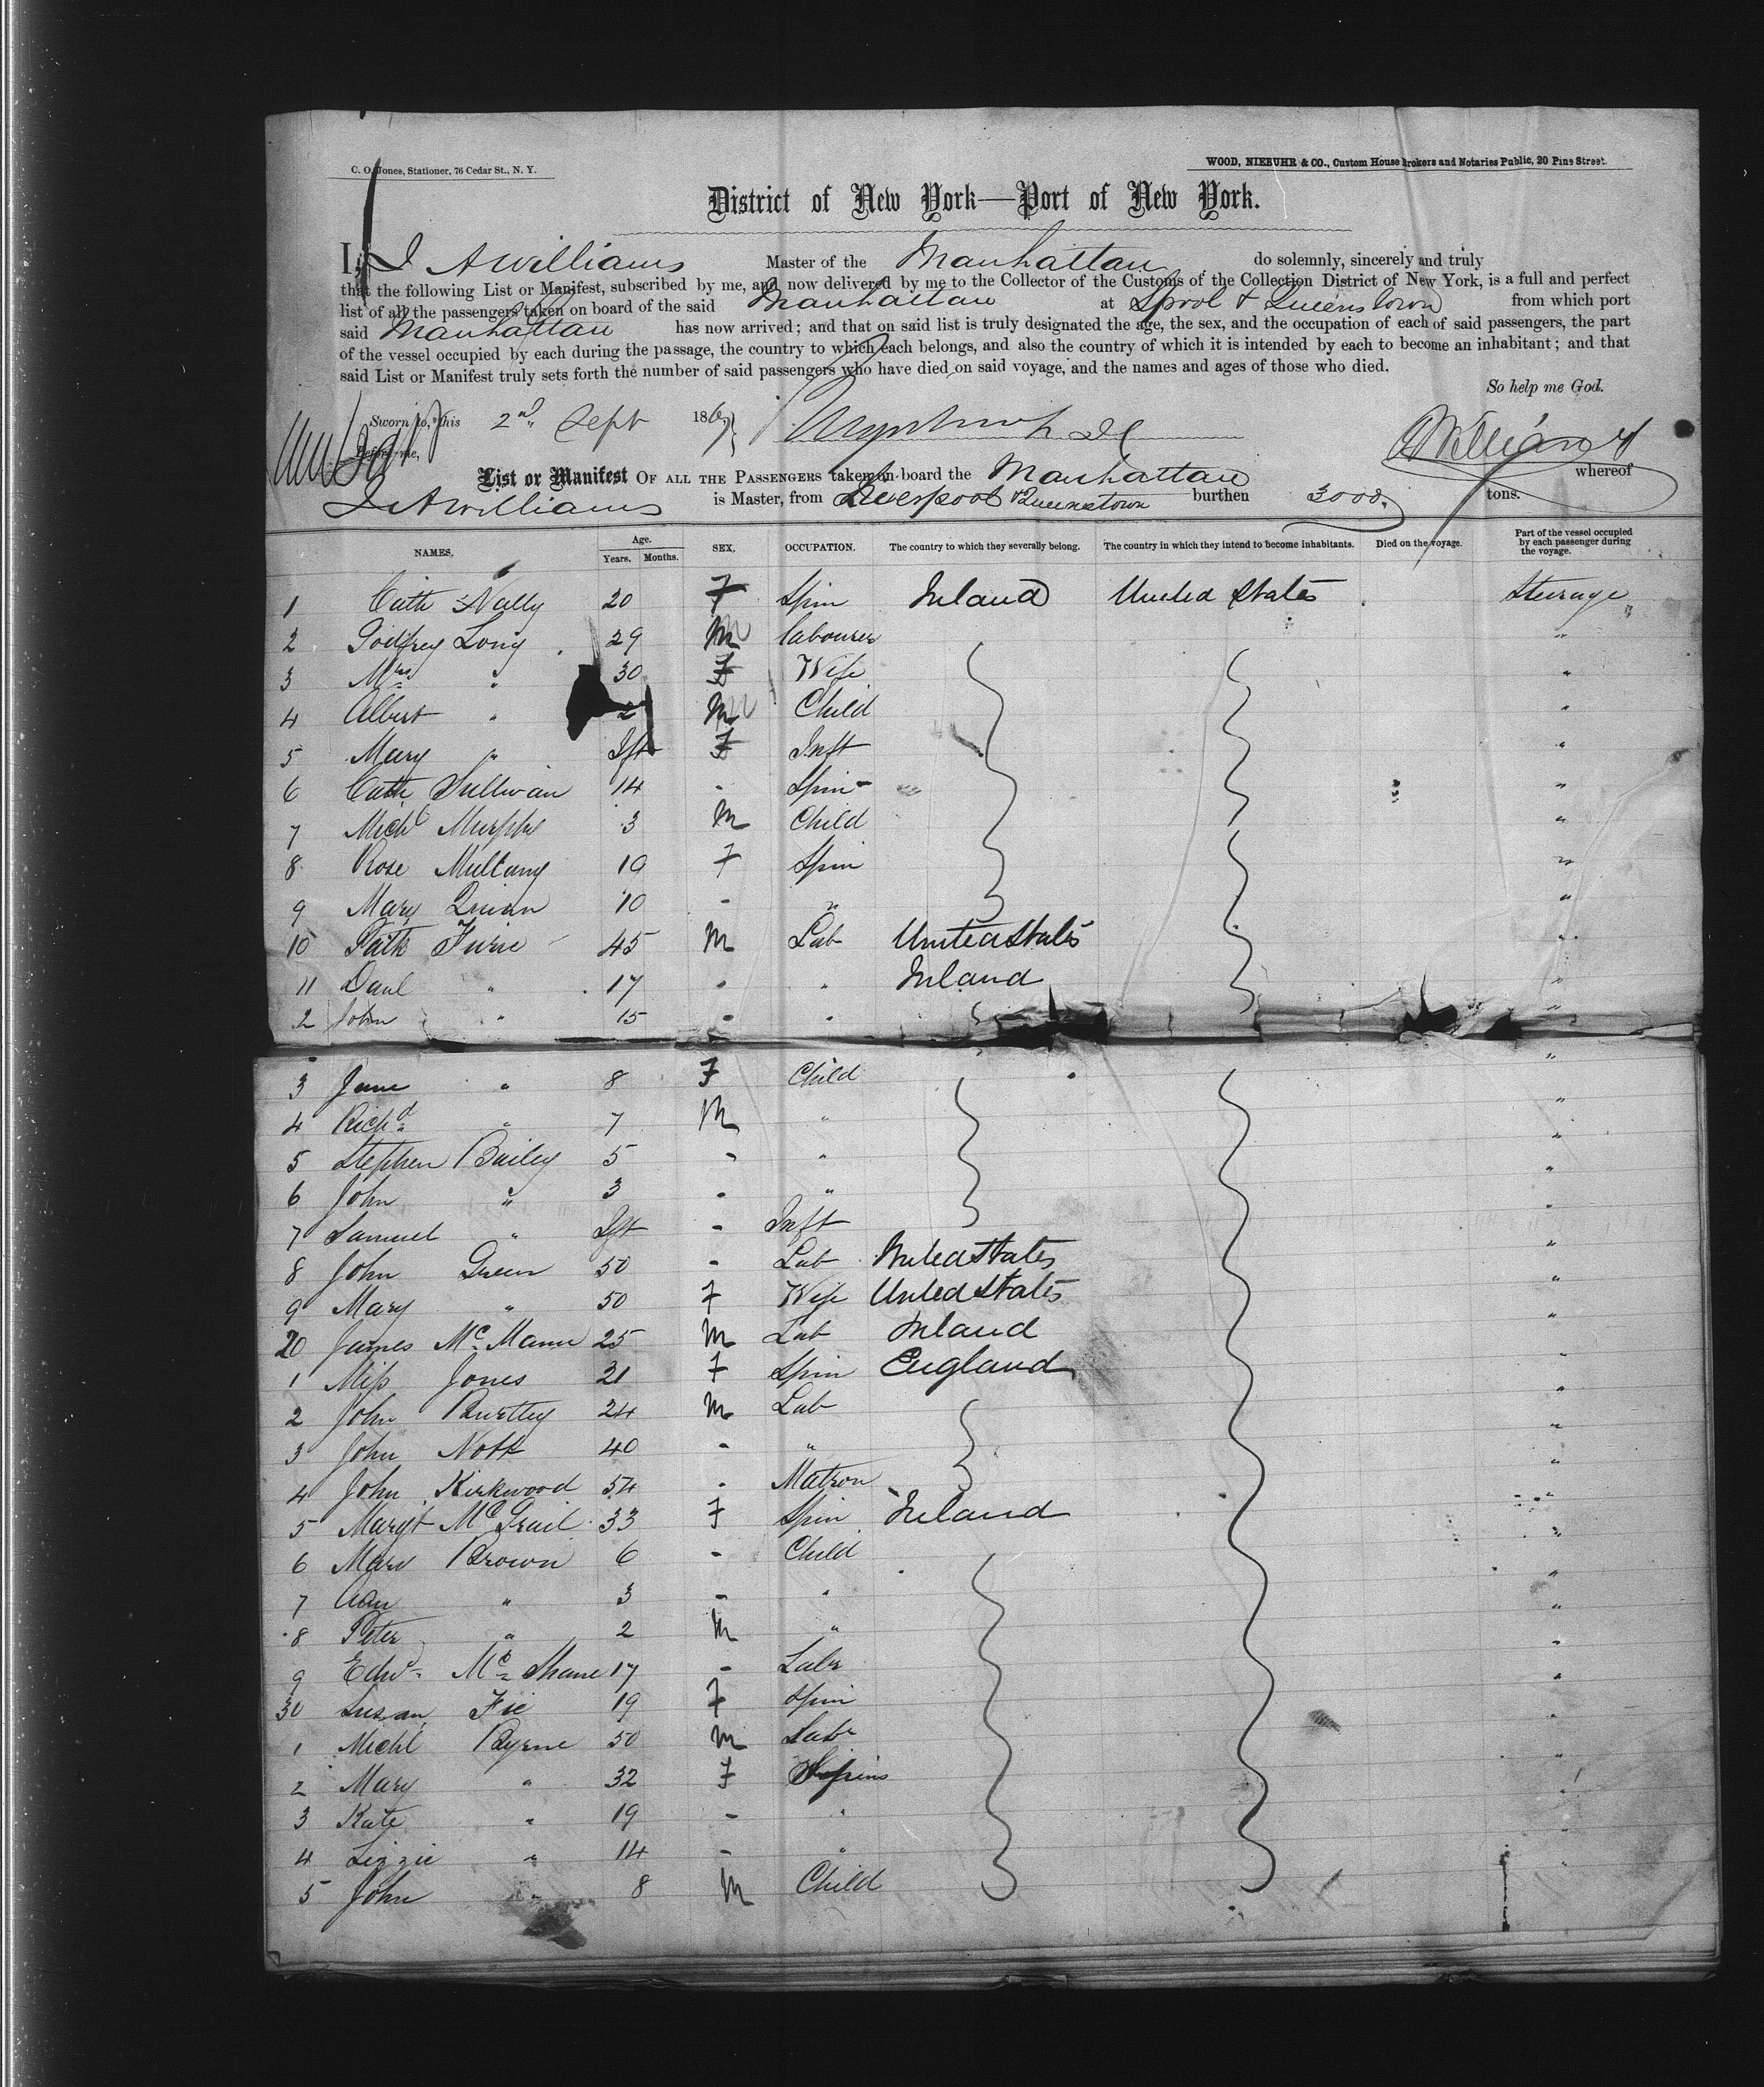 C. O. Jones, Stationer, 76 Cedar St., N. Y.
WOOD, NIEBUHR & CO., Custom House Brokers and Notaries Public, 20 Pine Street.
District of New York—Port of New York.
I, J A Williams Master of the Manhattan do solemnly, sincerely and truly
that the following List or Manifest, subscribed by me, and now delivered by me to the Collector of the Customs of the Collection District of New York, is a full and perfect
list of all the passengers taken on board of the said Manhattan at Lpool & Queenstown from which port
said Manhattan has now arrived; and that on said list is truly designated the age, the sex, and the occupation of each of said passengers, the part
of the vessel occupied by each during the passage, the country to which each belongs, and also the country of which it is intended by each to become an inhabitant; and that
said List or Manifest truly sets forth the number of said passengers who have died on said voyage, and the names and ages of those who died.
So help me God.
Sworn to, this 2nd Sept 1867
Before me, JAWilliams
List or Manifest OF ALL THE PASSENGERS taken on board the Manhattan whereof
J A Williams is Master, from Liverpool & Queenstown burthen 3000 tons.
NAMES. Age. Years. Months. SEX. OCCUPATION. The country to which they severally belong. The country in which they intend to become inhabitants. Died on the voyage. Part of the vessel occupied by each passenger during the voyage.
1 Cath Nally 20 F Spin Ireland United States Steerage
2 Godfrey Long 29 M labourer "
3 Mrs " 30 F Wife "
4 Albert " 2 M Child "
5 Mary " Ift F Inft "
6 Cath Sullivan 14 " Spin "
7 Michl Murphy 3 M Child "
8 Rose Mullany 19 F Spin "
9 Mary Quinn 10 " " "
10 Patk Furie 45 M Lab United States "
11 Danl " 17 " " Ireland "
2 John " 15 " " "
3 Jane " 8 F Child "
4 Richd " 7 M " "
5 Stephen Bailey 5 " " "
6 John " 3 " " "
7 Samuel " Ift " Inft "
8 John Green 50 " Lab United States "
9 Mary " 50 F Wife United States "
20 James Mc Mann 25 M Lab Ireland "
1 Miss Jones 21 F Spin England "
2 John 24 M Lab "
3 John Nott 40 " " "
4 John Kirkwood 54 " Matron "
5 Margt McGrail 33 F Spin Ireland "
6 Mary Brown 6 " Child "
7 Ann " 3 " " "
8 Peter " 2 M " "
9 Edwd Mc Shane 17 " Labr "
30 Susan Fie 19 F Spin "
1 Michl Byrne 50 M Labr "
2 Mary " 32 F Spins "
3 Kate " 19 " " "
4 Lizzie " 14 " " "
5 John " 8 M Child "